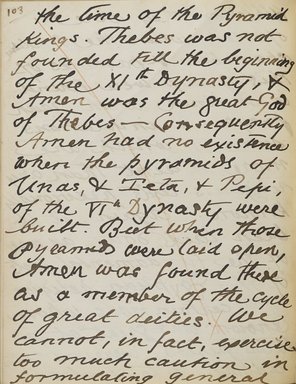 103
the time of the Pyramid
Kings. Thebes was not
founded till the biginning
of the XIth Dynasty, &
Amen was the great God
of Thebes — Consequently
Amen had no existence
when the pyramids of
Unas, & Teta, & Pepi,
of the VIth Dynasty were
built. But when those
pyramids were laid open,
Amen was found there
as a member of the cycle
of great deities. We
cannot, in fact, exercise
too much caution in
formulating general